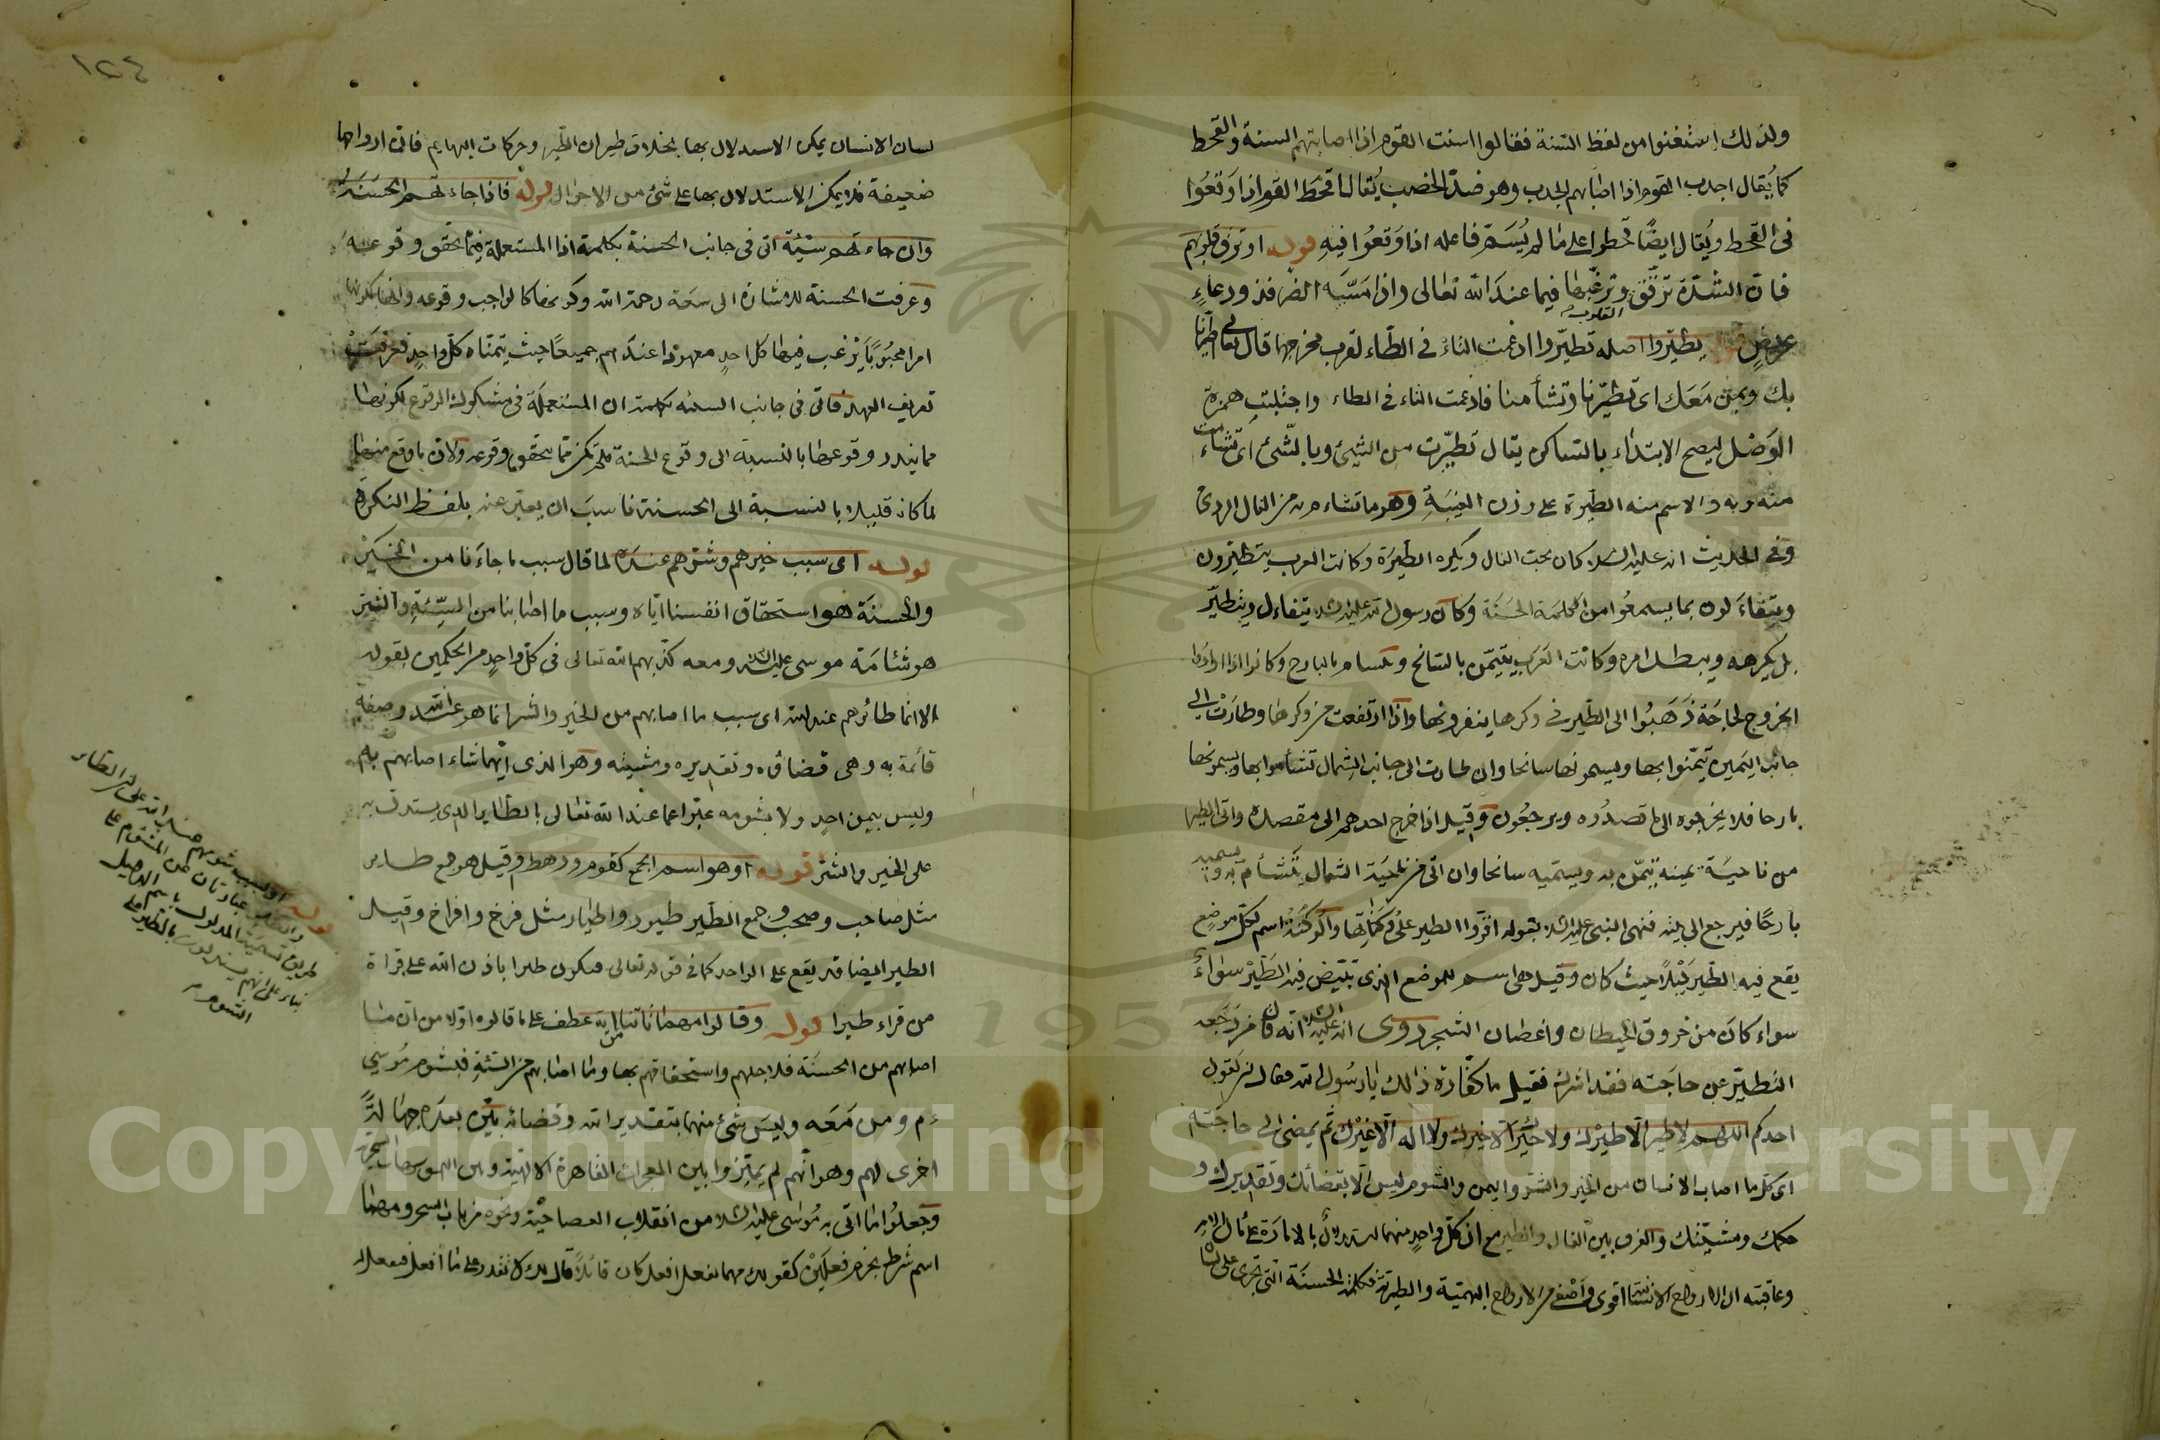 ولذلك اشتغنوا من لفظ السنة فقالوا اسنت القوم اذا اصابتهم السنة والقحط
كما يُقال اجدب القوم اذا اصابهم الجدب وهو ضدّ الخصب يُقال اقحط القوم اذا وَقعُوا
فى القحط ويُقال ايضًا قحطوا على ما لم يُسَمّ فاعله اذا وَقعُوا فيه قوله او ترق قلوبهم
فان الشدّة ترقق القلوب وترغّبها فيما عندَ الله تعالى واذا مَسَّه الضر فذو دعاءٍ
عريض يطيّروا اصله تطيّروا ادغمت التاءُ فى الطّاء لقرب مخرجهما قال تعالى اطيرنا
بك وبمن مَعَك اى تطيّرنا وتشأمنا فادغمت التاء فى الطاء واجتلبت همزة
الوَصْل ليصح الابتداء بالساكن يقال تطيّرت من الشئ وبالشّئ اى تشاءمت
منه وبه والاسم منه الطيرة على وزن العِنَبَة وهو ما تشاءم به من الفال الردئ
وفى الحديث انه عليه السلام كان يحب الفال ويكره الطيَرَة وكانت العرب يتطيّرون
ويتفاءَلون بما يسمعُوا من الكلمة الحَسَنَة وكان رسول الله عليه السلام يتفاءل ويتطيّر
بل يكرهه ويبطل امره وكانت العَرَب يتيمّن بالسانح و بالبارح وكانوا اذا ارادوا
الخروج لحاجَة ذَهَبُوا الى الطّير فى وكرها ينفرونها واذا ارتفعت من وكرها وطارَت الى
جانب اليَمين تيمّنوا بها ويسمونها سانحا وان طارت الى جانب الشمال تشأموا بها ويسمونها
بارحا فلا يخرجون الى ما قصدُوه ويرجعُون وقيل اذا خرج احدهم الى مقصده واتى الطير
من ناحيَة يمينه يتيمّن به ويسمّيه سانحا وان اتى من ناحيَة الشمال يَتشأم به ويسميه
بارحًا فيرجع الى بيته فنهى النبى عليه السلام بقوله اقرّوا الطير على وكناتها والوكنةُ اسم لكلّ موضع
يقع فيه الطّير لَيْلاً حيث كان وقيل هى اسم للموضع الذى تبيّض فيه الطَيْرُ سَواءٌ
سواء كانَ من خروق الحيطان واغصان الشجر روى انه عليه السلام انّه قال من رَجَعه
التطيّر عن حاجَته فقد اشرك فقيل ما كفارة ذالك يا رسُول الله فقال ان يَقول
احدكم اللهم لا طير الّا طيرُك ولا خيرَ الّا خيرك ولا اله الّا غيرُك ثم يمضى الى حاجَته
اى كل ما اصاب الانسان من الخير والشر واليمن والشوم ليس الّا بقضائك وتقديرك و
حكمك ومشيّتك والفرق بين الفال والطير مع ان كلّ واحدٍ منهما استدلالٌ بالامارَة على مَال الامر
وعاقبته ان الارواح الانسانية اقوى واصْفى من الارواح البهيميّة والطيريّة فكلمة الحسنَة التى تجرى على لسان
١٢٤
لسان الانسان يمكن الاستدلال بها بخلاف طيران الطّير وحركات البهايم فان ارواحها
ضعيفة فلا يمكن الاستدلال بها على شئ من الاحوال قوله فاذا جاءَتهم الحَسَنَة
وان جاءتهم سيّئة اتى فى جانب الحسنة بكلمة اذا المستعملة فيما يحقق وقوعه
وعرفت الحسنة للاشارة الى سَعَة رحمة الله وكونها كالواجب وقوعه ولكونها
امرا محبُوبًا يَرْغب فيها كل احدٍ معهودا عندَهم جميعًا حيث يتمنّاه كلّ واحدٍ فعرفت
تعريف العهد فاتى فى جانب السيئة بكلمة ان المستعملَة فى مشكوك الوقوع لكونها
مما يندر وقوعها بالنسبة الى وقوع الحسنة فلم تكن مما يتحقق وقوعه ولان ما وقع منها
لما كان قليلا بالنسبة الى الحسنة ناسبَ ان يعبّر عنه بلفظ النكرَة
قوله اى سبب خيرهم وشرّهم عنده لما قال سبب ما جاءَنا من الخيْر
والحسنَة هو استحقاق انفسنا ايّاه وسبب ما اصابنا من السيّئة والشرّ
هو شَامَة موسى عليه السلام ومن معه كذّبهم الله تعالى فى كلّ واحدٍ من الحكمين بقوله
الا انّما طائرهم عند الله اى سبب ما اصابهم من الخير والشر انما هو عند الله وصفة
قائمة به وهى قضاؤه وتقديره ومشيته وهو الذى ايّهما شاء اصابهم به
وليس بيمن احدٍ ولا بشومه عبّر عما عند الله تعالى بالطّاير الذى يستدل به
على الخير والشرّ قوله او هو اسم الجمع كقوم ورهط وقيل هو جمع طاير
مثل صاحب وصحب وجمع الطّير طيور واطيار مثل فرخ وافراخ وقيل
الطير ايضا قد يقع على الواحد كما فى قوله تعالى فيكون طيرا باذن الله على قراءة
من قراء طيرا قوله وقالوا مهما تأتنا به من اية عطف على ما قالوه اوّلا من ان ما
اصابهم من الحسنَة فلاجلهم واستحقاقهم بها وما اصابهم من السيئة فبشوم مُوسى
ءم ومن مَعَه وليسَ شئ منهما بتقدير الله وقضائه بيّن بعده جهالَة
اخرى لهم وهو انّهم لم يميّزوا بين المعجزات القاهرة الالهيّة وبين
وجعلوا ما اتى به مُوسى عليه السلام من انقلاب العصا حيّة ونحوه من باب السحر ومهما
اسم شرط يجزم فعلين كقولك مهما تفعل افعل كان قائلاً قال لك لا تقدر على ما افعل فقال
قوله او سبب شومهم عند الله على ان الطائر
عبارتان عن المشؤم على
طريق تسمية المدلول باسم الدليل
بناء على انهم يستدلون بالطير على
الشوم